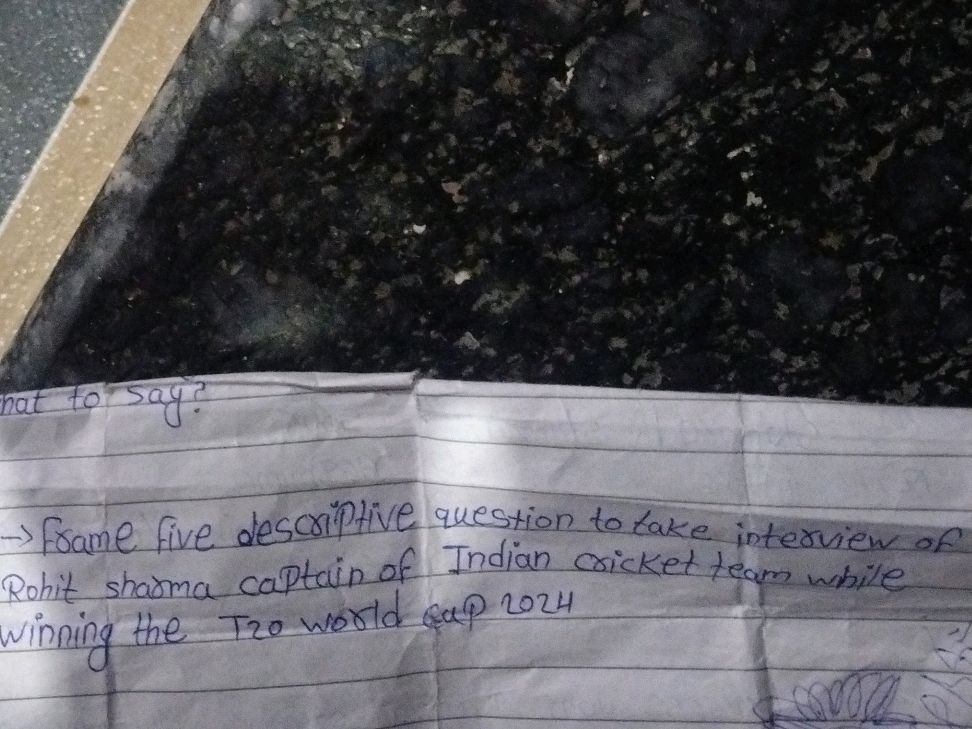 hat to say?
→ Frame five descriptive question to take interview of
Rohit sharma captain of Indian cricket team while
winning the T20 world cup 2024